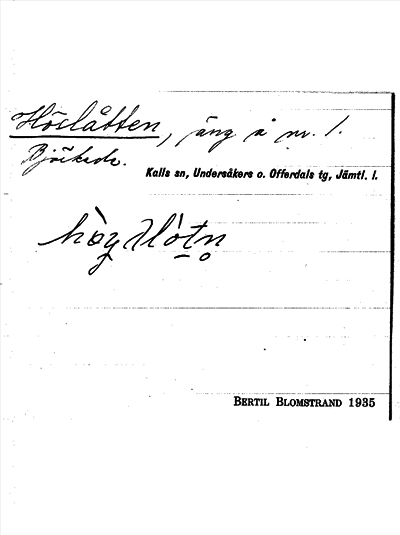 Höslåtten, äng å nr. 1.
Björkede.
Kalls sn, Undersåkers o. Offerdals tg, Jämtl. l.
BERTIL BLOMSTRAND 1935